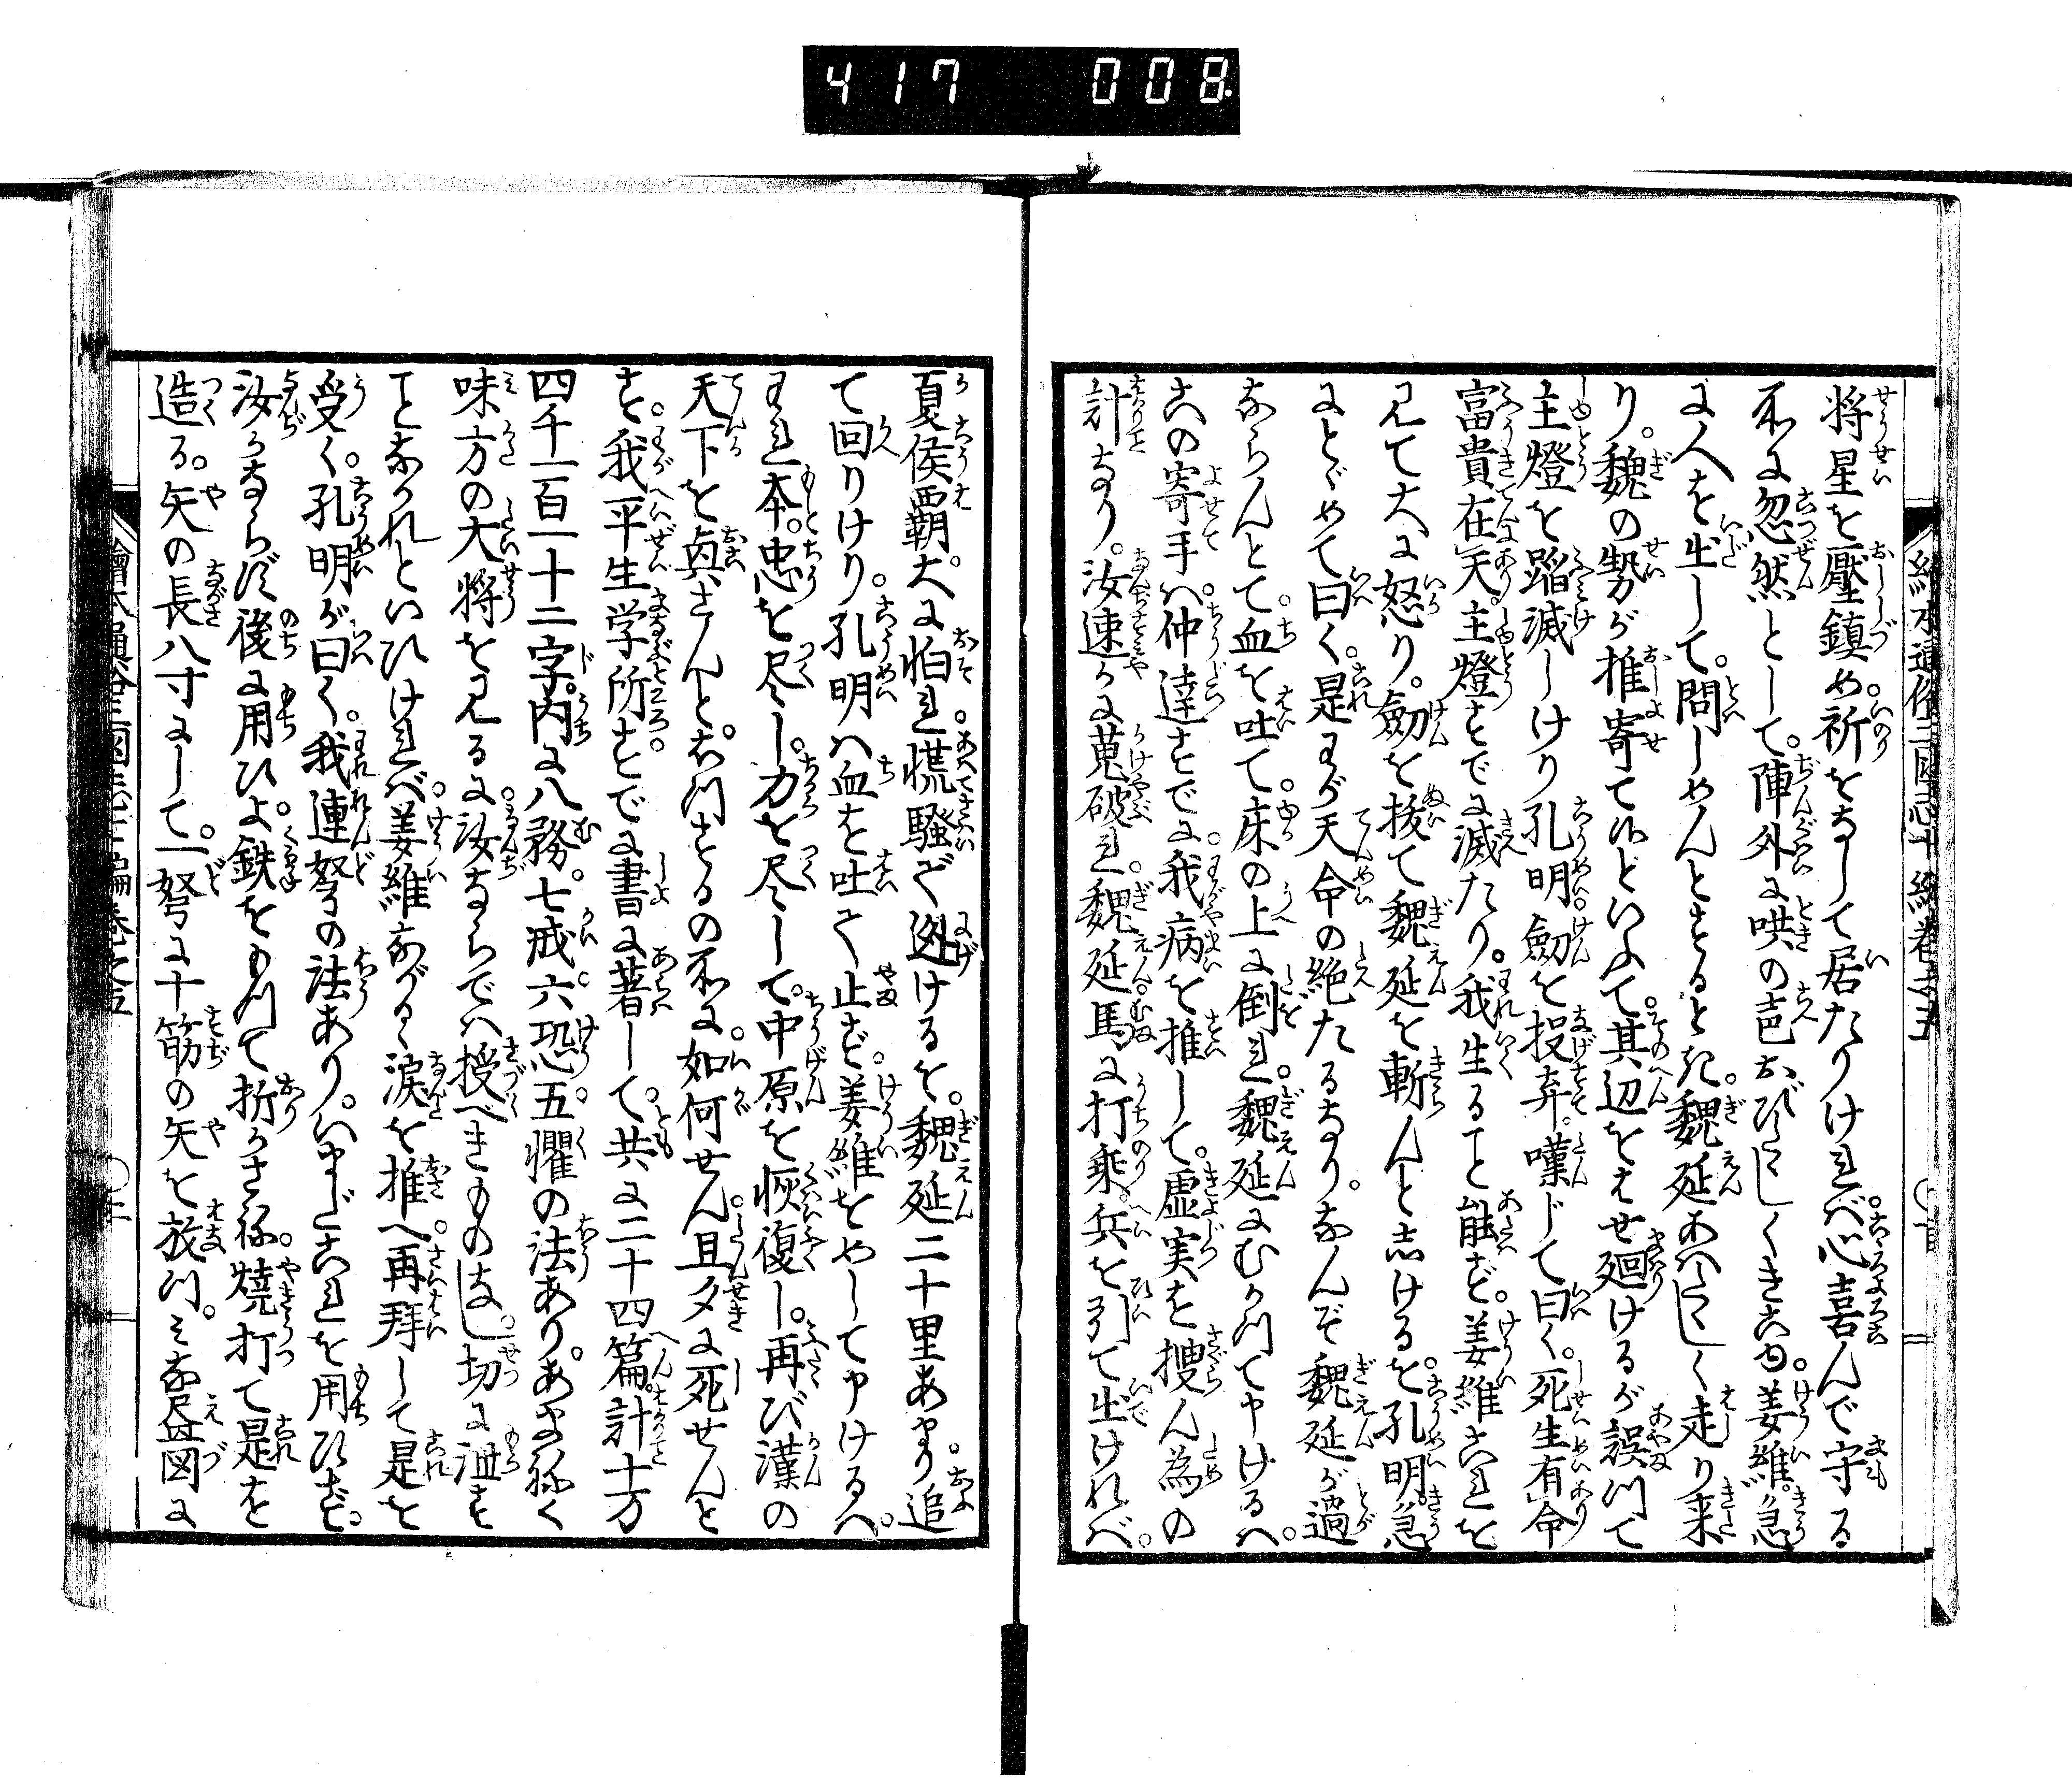 417 008
将星を壓鎮め。祈をなして居たりければ。心喜んで守る
所に忽然として。陣外に哄の声おびたゝしくきこゆ。姜維。急
に人を出して。問しめんとする所に。魏延あはたゝしく走り来
り。魏の勢が推寄て候といふて。其辺をはせ廻けるが誤つて
主燈を蹈滅しけり孔明。劔を投弃。嘆じて曰く。死生有命
富貴在天。主燈すでに滅たり。我生ること能ず。姜維これを
見て大に怒り。劔を抜て魏延を斬んとしけるを。孔明。急
にとゞめて曰く。是わが天命の絶たるなり。なんぞ魏延が過
ならんとて。血を吐て。床の上に倒れ。魏延にむかつて申けるハ。
此の寄手ハ。仲達すでに。我病を推して。虚実を捜ん為の
計なり。汝速かに蒐破れ。魏延。馬に打乗。兵を引て出けれバ。
夏侯覇。大に怕れ。慌騒ぎ迯けるを。魏延二十里あまり追
て回りけり。孔明ハ血を吐て止ず。姜維をめして申けるハ。
われ本。忠を尽し。力を尽して。中原を恢復し。再び漢の
天下を興さんと。おもひするの所に。如何せん。旦夕に死せんと
す。我平生学所。すでに書に著して。共に二十四篇。計十万
四千一百一十二字。内に八務。七戒。六恐。五懼の法あり。あまねく
味方の大将を見るに。汝ならでハ授べきものなし。一切に泄す
ことなかれといひけれバ。姜維ながるゝ涙を推へ。再拜して是を
受く。孔明が曰く。我連弩の法あり。いまだこれを用ひず。
汝かならず後に用ひよ。鉄をもつて折かさね。焼打て是を
造る。矢の長八寸にして。一弩に十筋の矢を放つ。みな畫図に